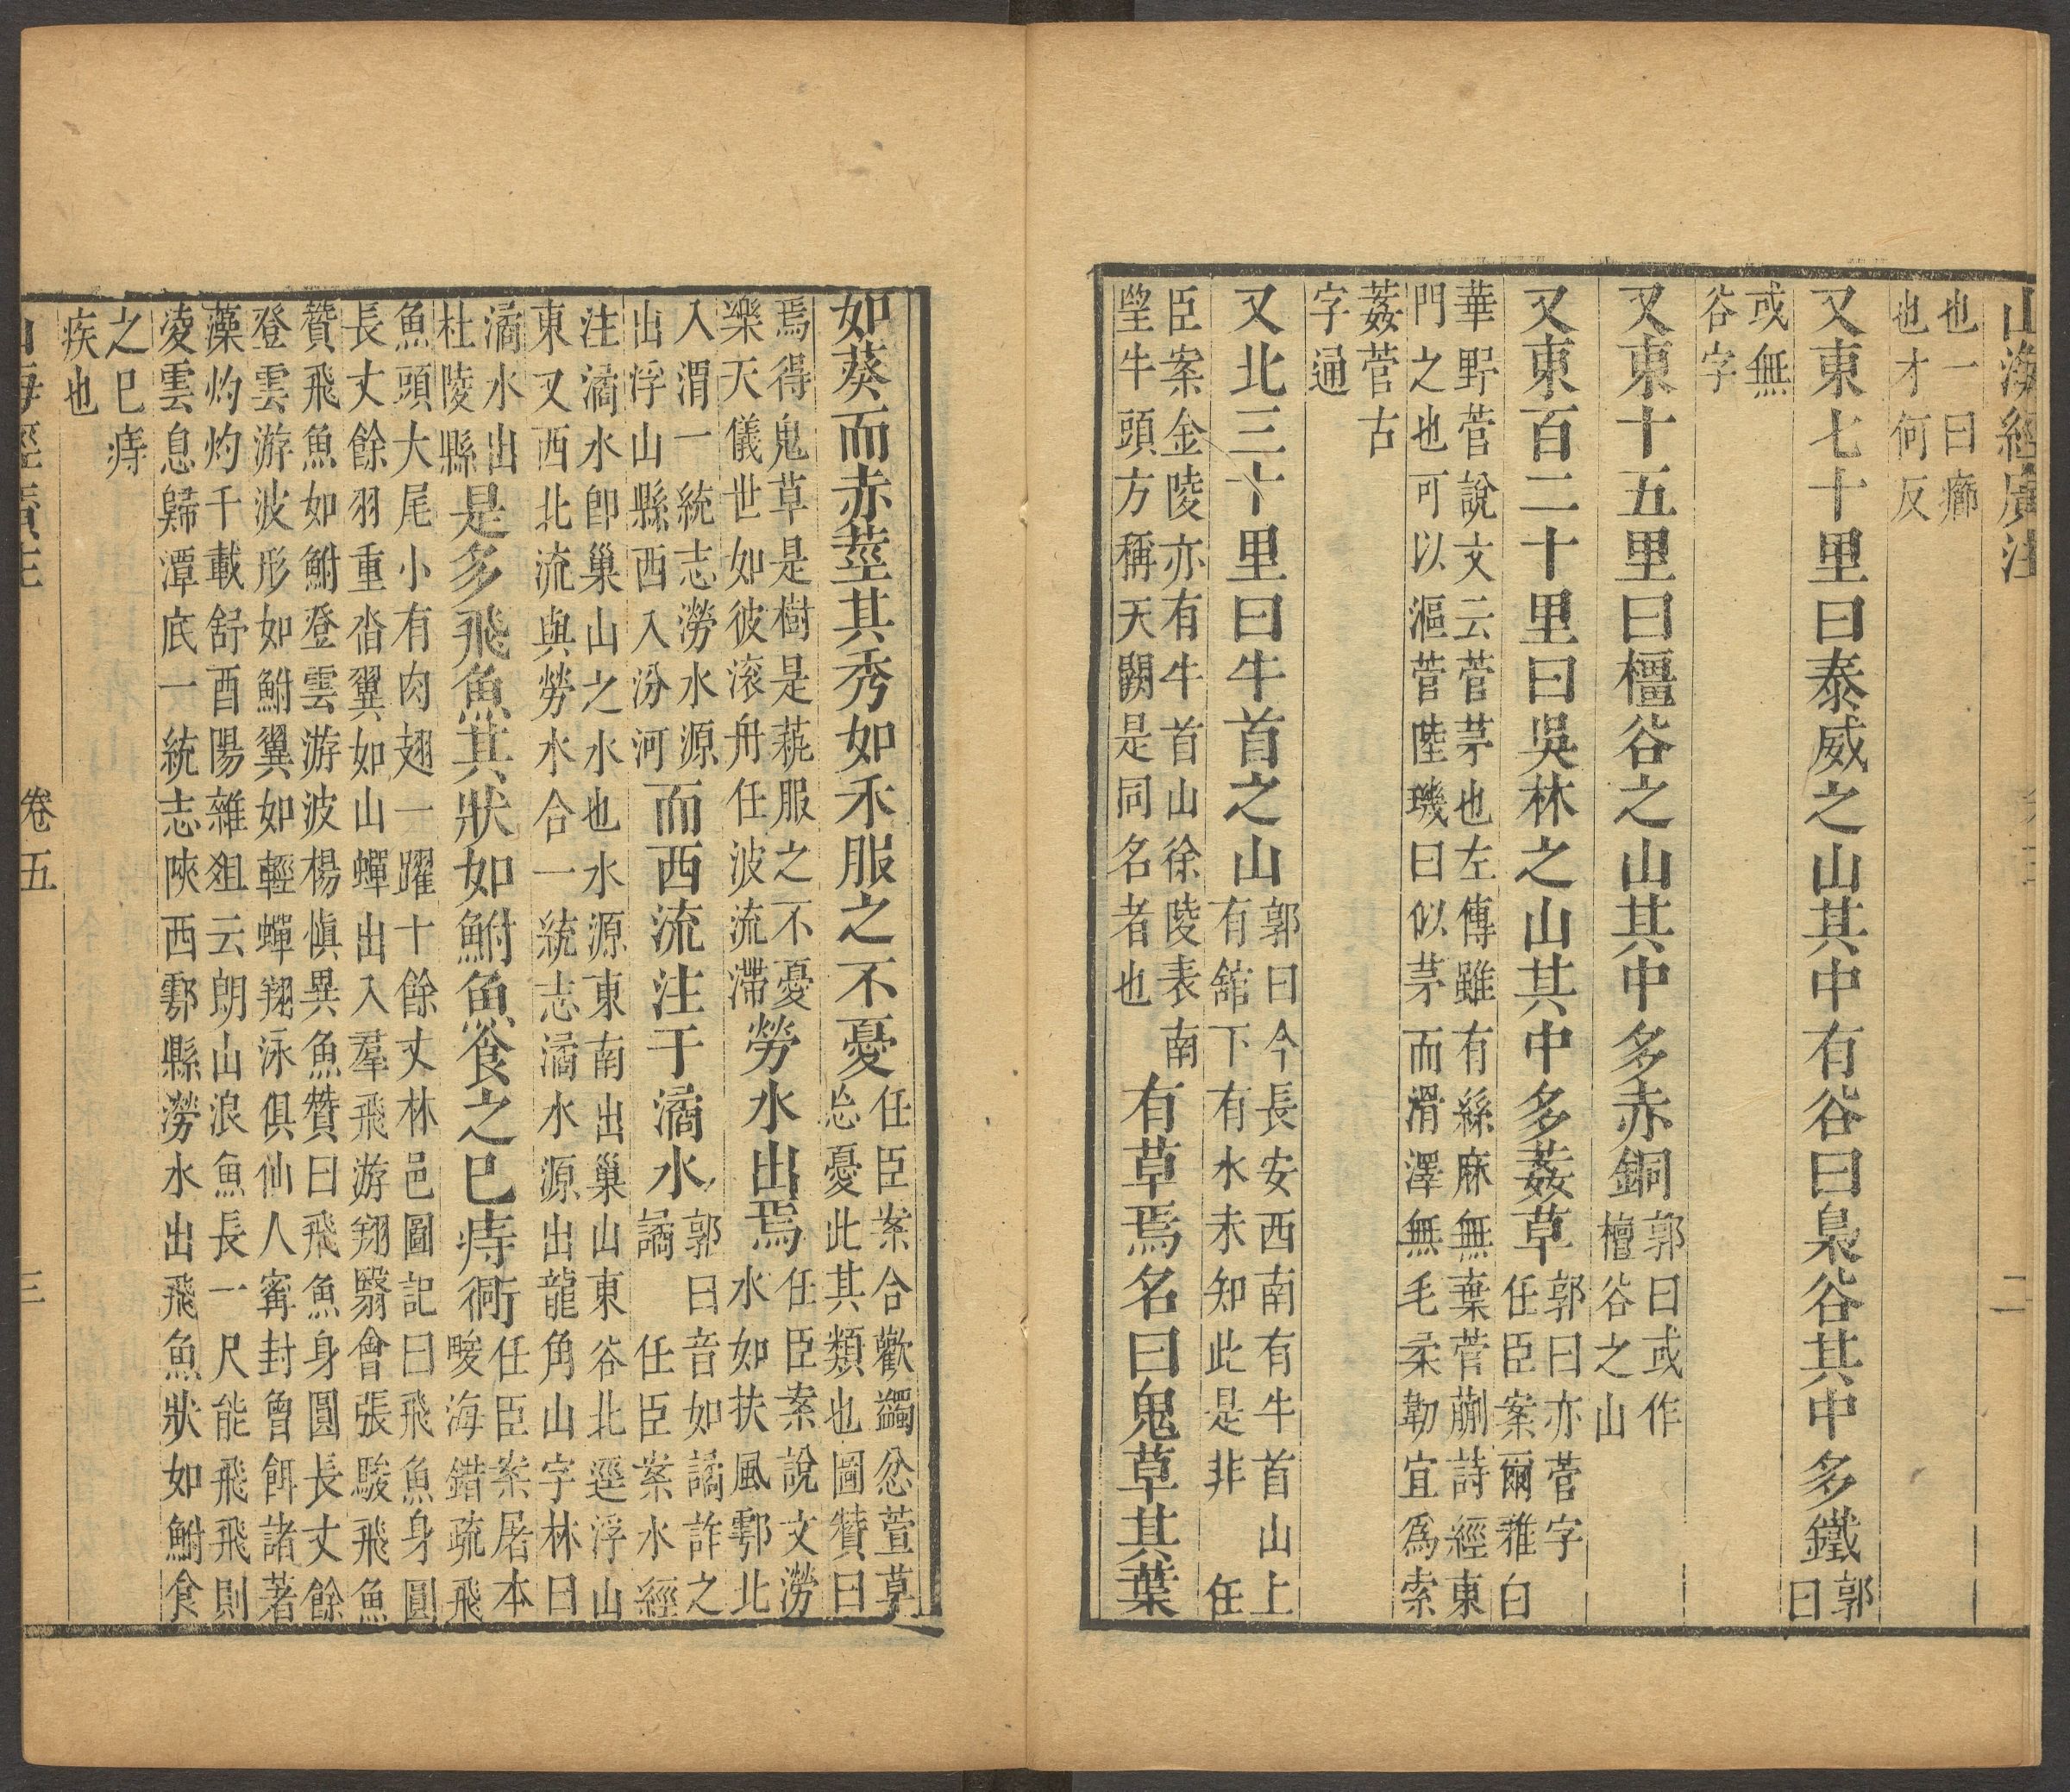 山海經廣注
二
也一曰癤
也才何反
又東七十里曰泰威之山其中有谷曰梟谷其中多鐵郭
曰
或無
谷字
又東十五里曰橿谷之山其中多赤銅郭曰或作
檀谷之山
又東百二十里曰吳林之山其中多葌草郭曰亦菅字
任臣案爾雅白
華野菅說文云菅茅也左傳雖有絲麻無棄菅蒯詩經東
門之也可以漚菅陸璣曰似茅而滑澤無毛柔韌宜爲索
葌菅古
字通
又北三十里曰牛首之山郭曰今長安西南有牛首山上
有館下有水未知此是非任
臣案金陵亦有牛首山徐陵表南
望牛頭方稱天闕是同名者也
有草焉名曰鬼草其葉
如葵而赤莖其秀如禾服之不憂任臣案合歡蠲忿萱草
忘憂此其類也圖贊曰
焉得鬼草是樹是蓻服之不憂
樂天儀世如彼滚舟任波流滯
勞水出焉任臣案說文澇
水如扶風鄠北
入渭一統志勞水源
出浮山縣西入汾河
而西流注于潏水郭曰音如譎詐之
譎任臣案水經
注潏水卽巢山之水也水源東南出巢山東谷北逕浮山
東又西北流與勞水合一統志潏水源出龍角山字林曰
潏水出
杜陵縣
是多飛魚其狀如鮒魚食之已痔衕任臣案居本
畯海錯疏飛
魚頭大尾小有肉翅一躍十餘丈林邑圖記曰飛魚身圓
長丈餘羽重沓翼如山蟬出入羣飛游翔翳會張駿飛魚
贊飛魚如鮒登雲游波楊愼異魚贊曰飛魚身圓長丈餘
登雲游波形如鮒翼如輕蟬翔泳俱仙人甯封曾餌諸著
藻灼灼千載舒酉陽雜俎云朗山浪魚長一尺能飛飛則
凌雲息歸潭底一統志陝西鄠縣澇水出飛魚狀如鮒食
之已痔
疾也
卷五
三